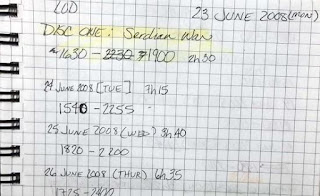 LOD 23 JUNE 2008 (MON)
DISC ONE: Serdian War
1630 - 2230 1900 2h30
24 JUNE 2008 [TUE] 7h15
1540 - 2255
25 JUNE 2008 (WED) 3h40
1820 - 2200
26 JUNE 2008 (THUR) 6h35
1725 - 2400